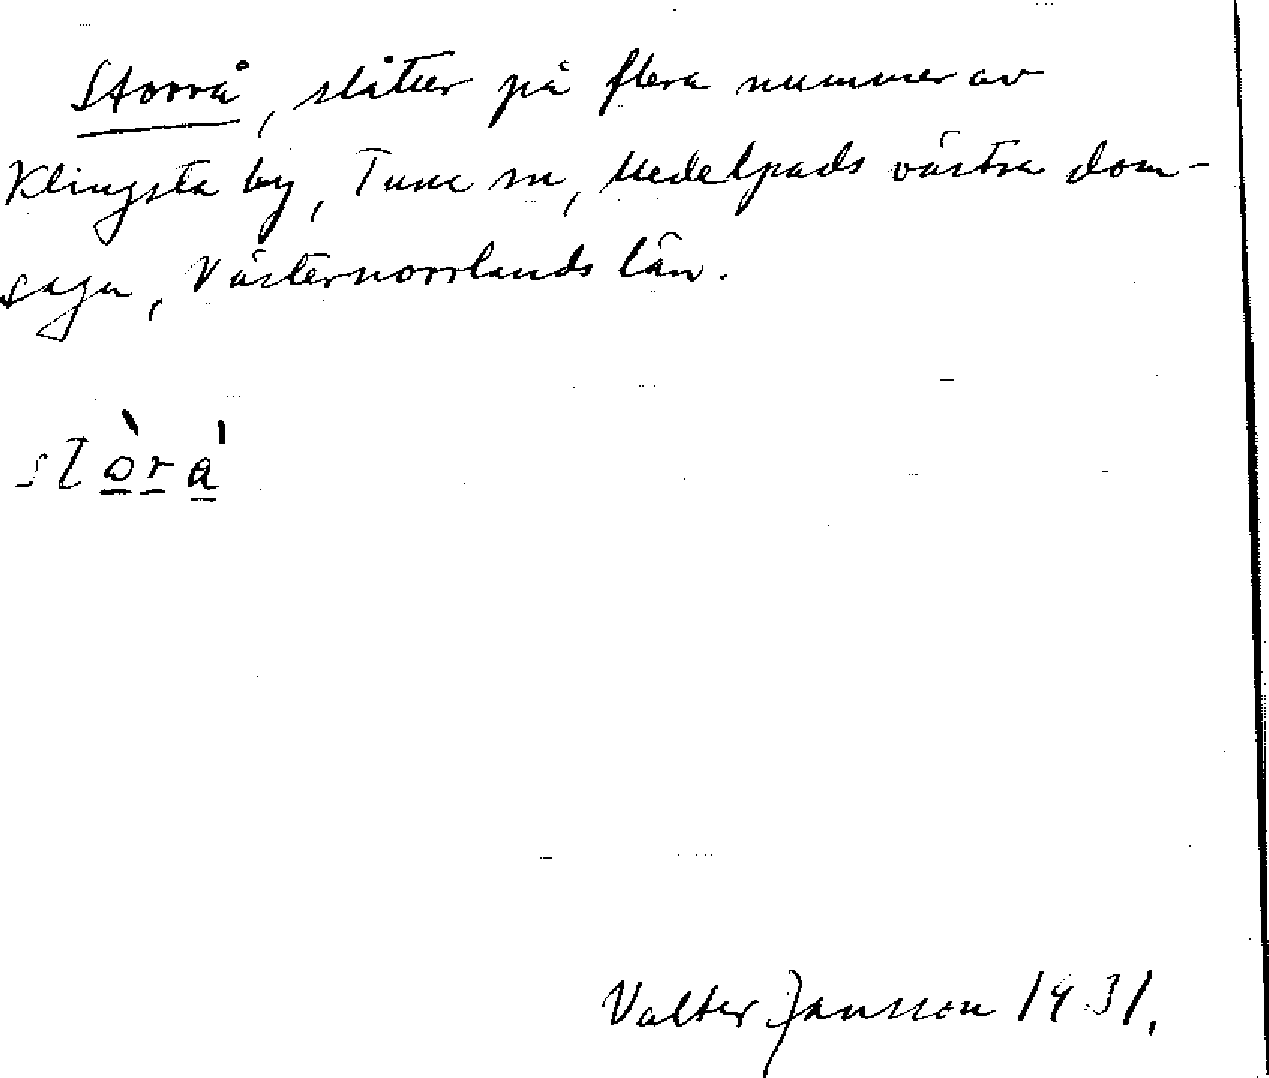 Storrå, slåtter på flera nummer av
Klingsta by, Tuna sn, Medelpads västra dom-
saga, Västernorrlands län.
stòra̍
Valter Jansson 1931.